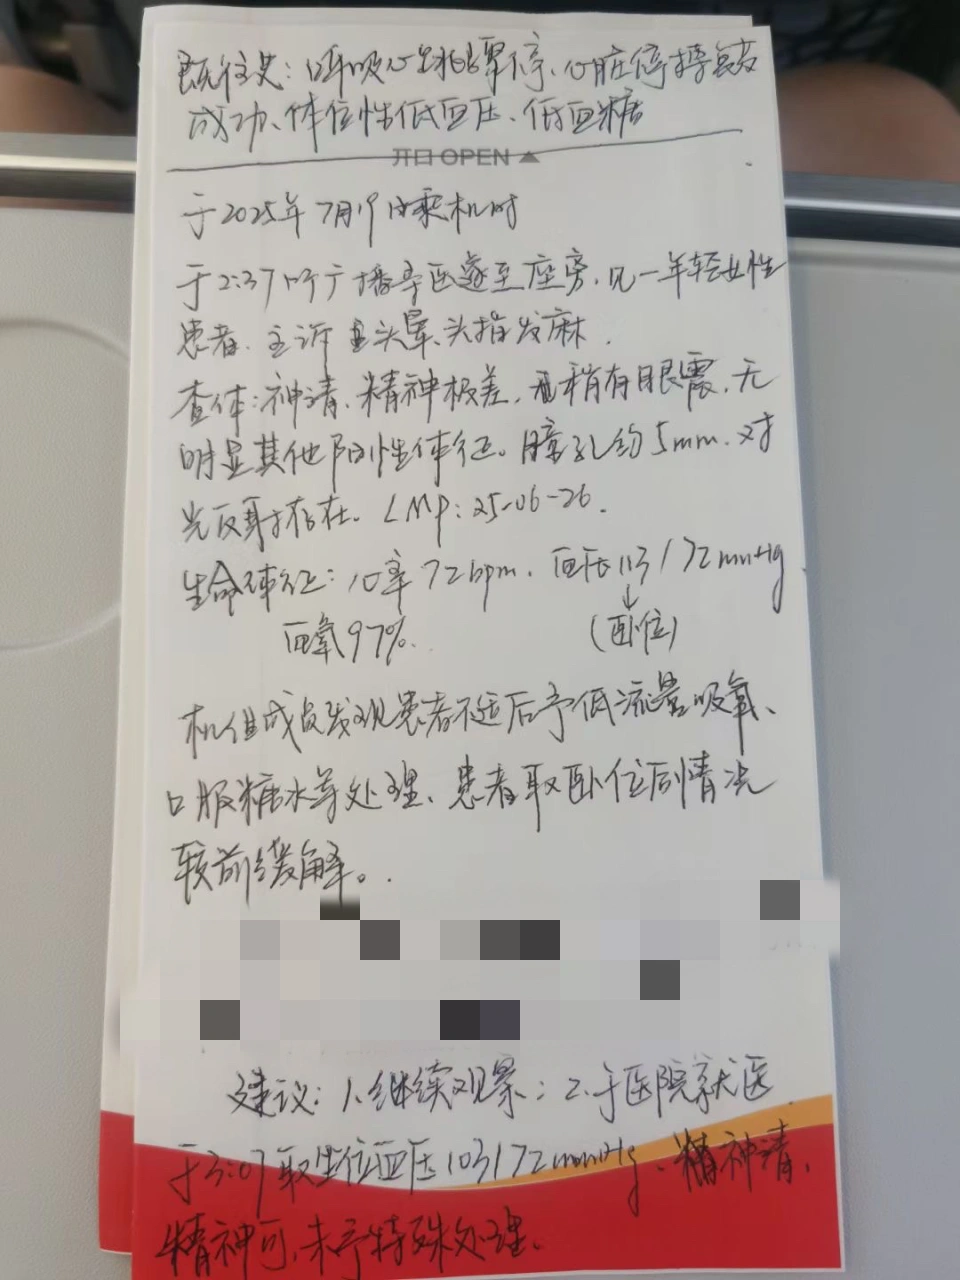 既往史：呼吸心跳骤停、心脏停搏复苏
成功、体位性低血压、低血糖
开口 OPEN
于2025年7月19日乘机时
于2:37听广播寻医遂至座旁，见一年轻女性
患者，主诉头晕、头指发麻．
查体：神清，精神极差，稍有眼震，无
明显其他阳性体征。瞳孔约5mm．对
光反射存在．LMP：25-06-26．
生命体征：心率72bpm．血压113/72mmHg
血氧97%． （卧位）
机组成员发现患者不适后予低流量吸氧、
口服糖水等处理、患者取卧位后情况
较前缓解。
建议：1.继续观察；2.于医院就医
于3:07取坐位血压103/72mmHg、精神清，
精神可，未予特殊处理．